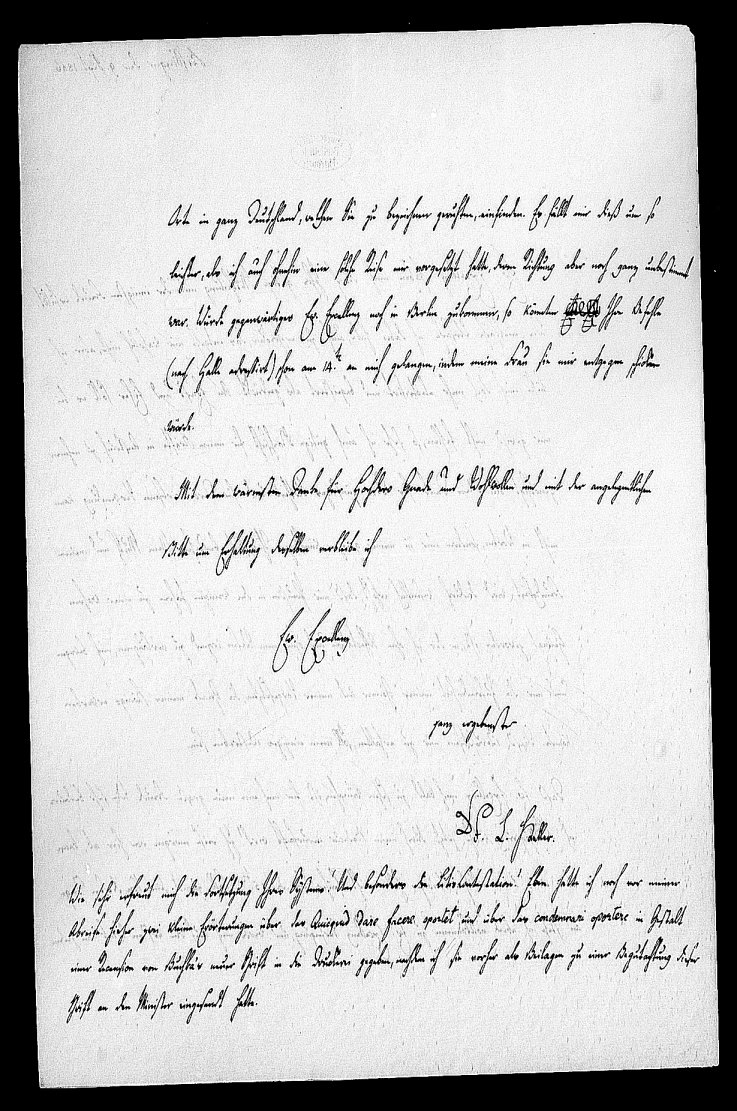 Orte in ganz Deutschland, welchen Sie zu bezeichnen geruhten, einfinden. Es fällt mir dieß um so
leichter, als ich auch ohnehin eine solche Reise mir vorgesetzt hatte, deren Richtung aber noch ganz unbestimmt
war. Würde gegenwärtiges Ew. Excellenz noch in Berlin zukommen, so könnten Ihre Befehle
(nach Halle adressirt) schon am 14.ten an mich gelangen, indem meine Frau sie mir entgegen schicken
würde.
Mit dem wärmsten Danke für Hochdero Gnade und Wohlwollen und mit der angelegentlichsten
Bitte um Erhaltung derselben verbleibe ich
Ew. Excellenz
ganz ergebenster
Dr. L. Heller.
Wie sehr erfreut mich die Fortsetzung Ihres Systems! Und besonders die Litiscontestation! Eben hatte ich noch vor meiner
Abreise hieher zwei kleine Erörterungen über das Quicquid dare facere oportet und über das condemnari oportere in Gestalt
einer Recension von Buchka's neuer Schrift in die Druckerei gegeben, nachdem ich sie vorher als Beilagen zu einer Begutachtung dieser
Schrift an den Minister eingesandt hatte.